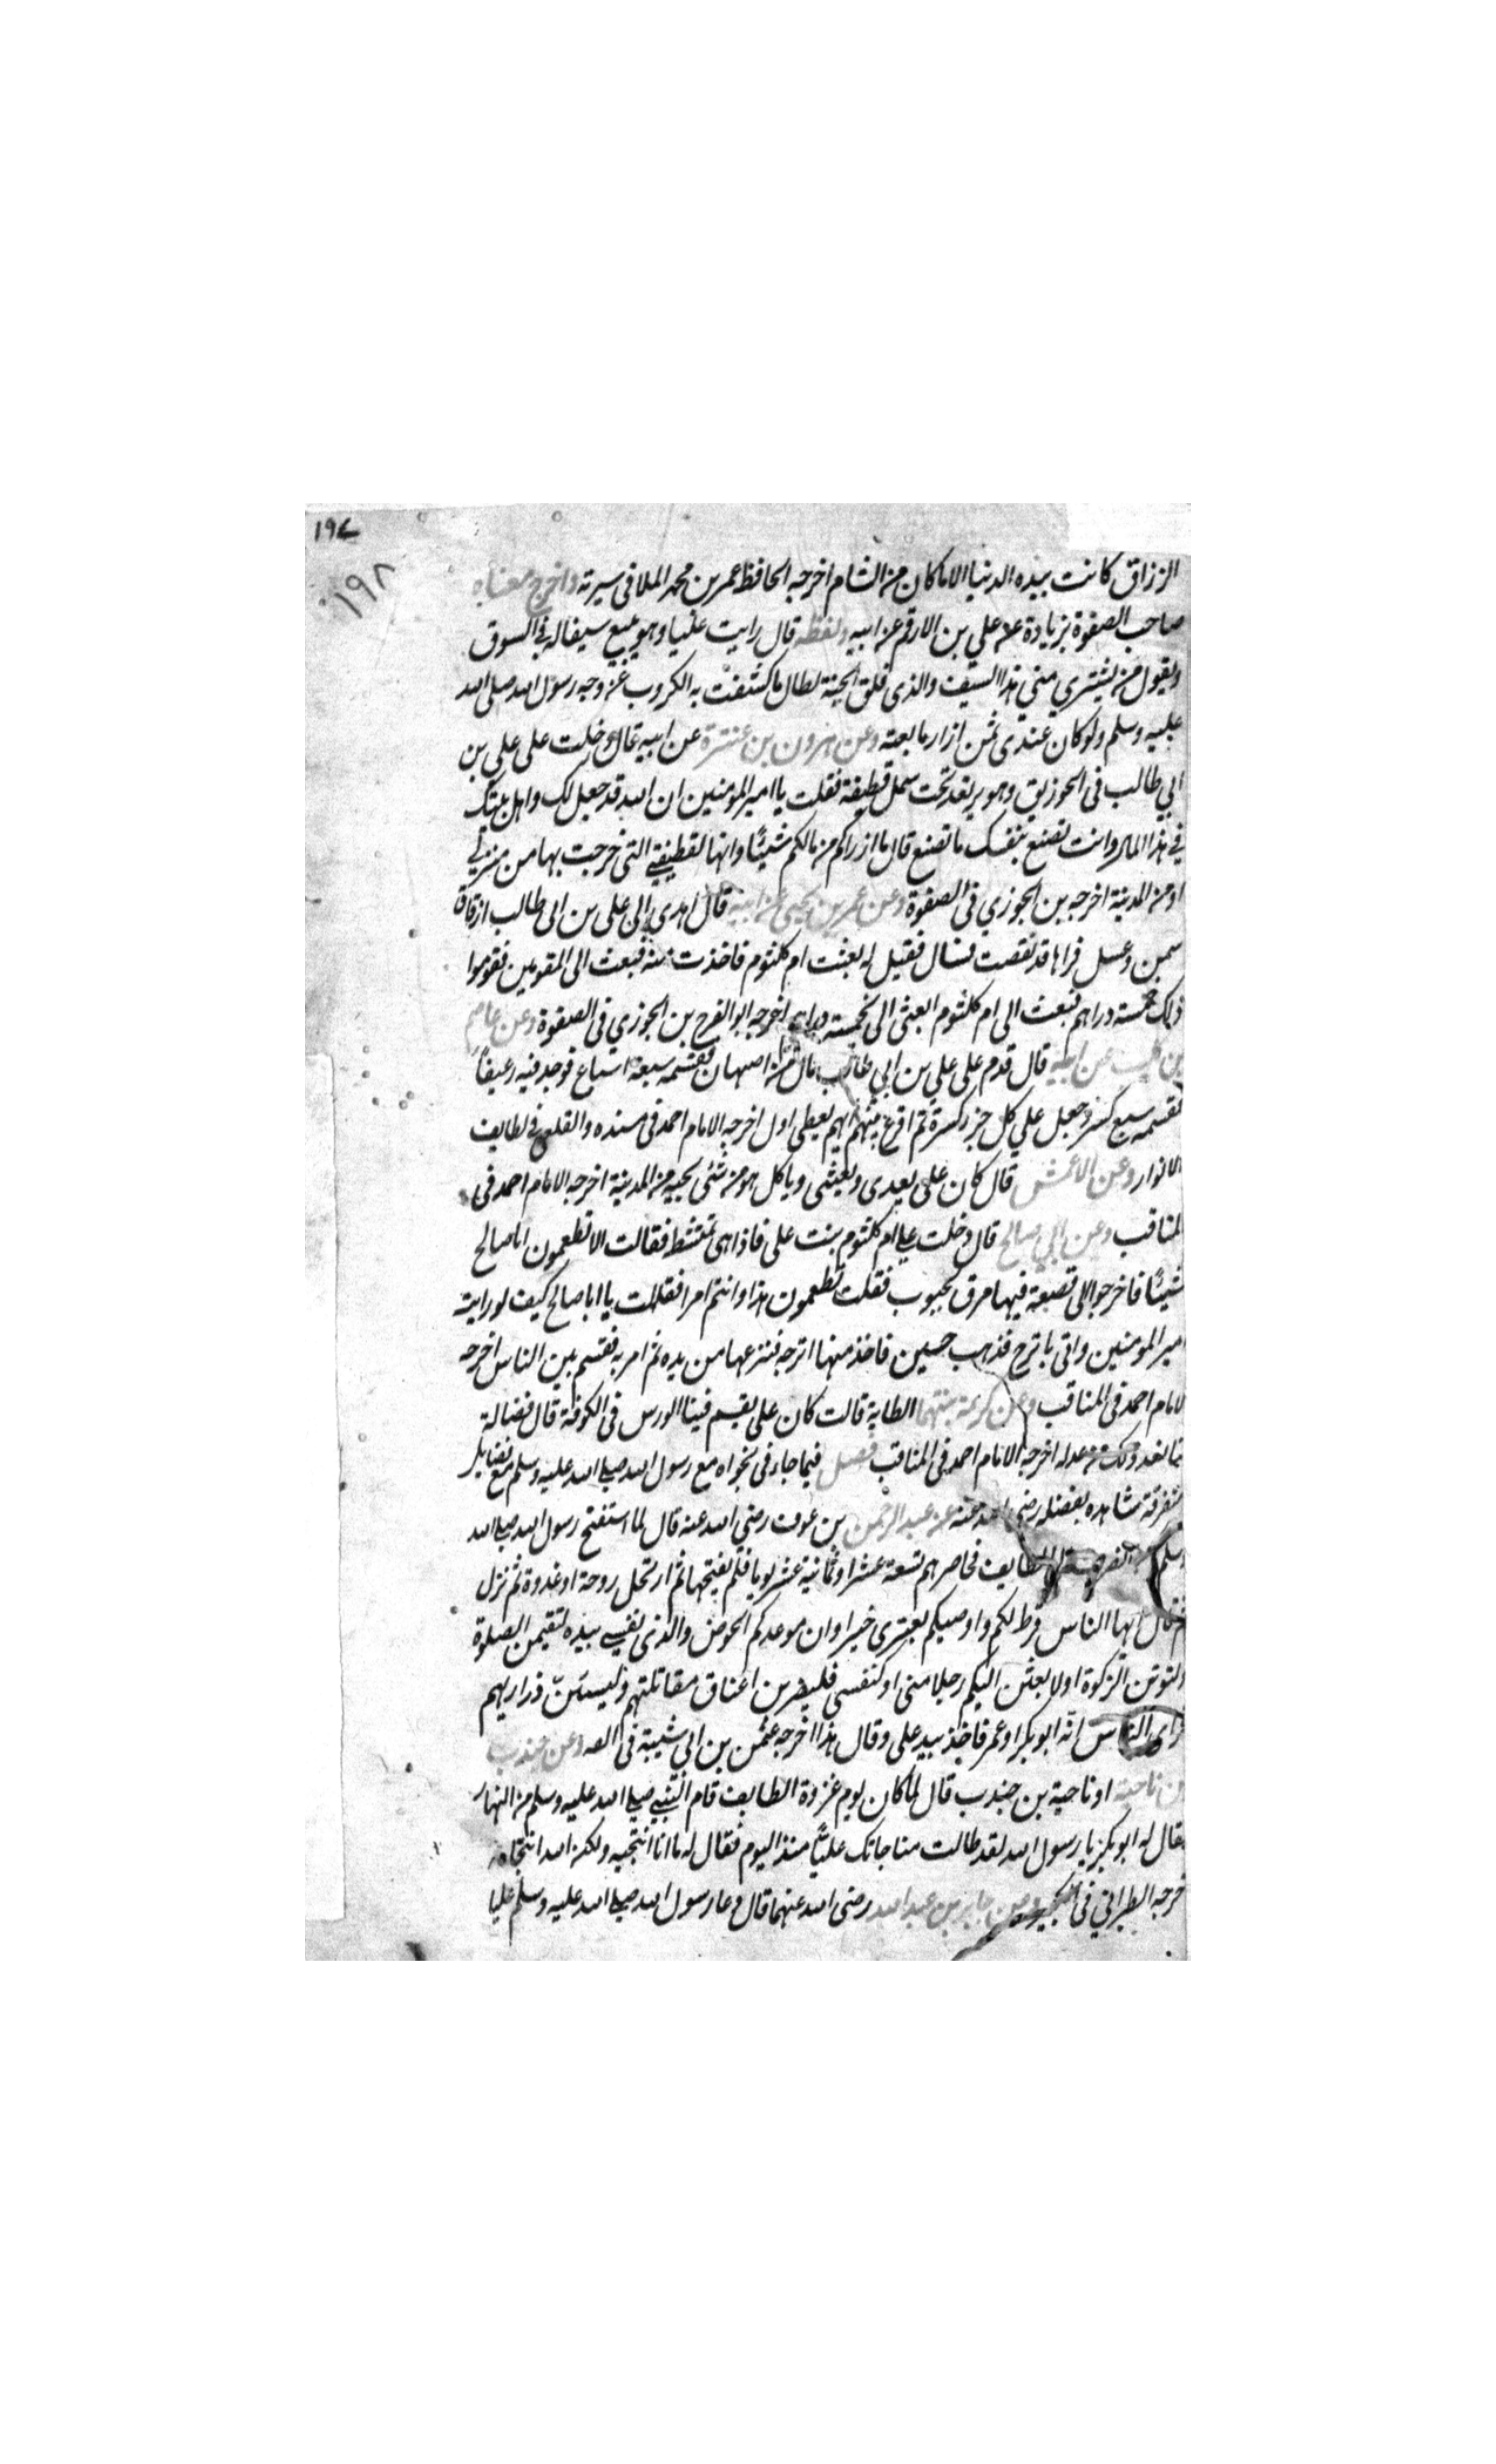 ١٩٧
١٩٨
الرزاق كانت بيده الدنيا الا ماكان من الشام اخرجه الحافظ عمر بن محمد الملا في سيرته واخرج معناه
صاحب الصفوة بزيادة عن علي بن الارقم عن ابيه ولفظه قال رايت عليا وهو يبيع سيفا له في السوق
ويقول من يشتري مني هذا السيف والذي فلق الحبة لطال ما كشفت به الكروب عن وجه رسول الله صلى الله
عليه وسلم ولو كان عندي ثمن ازار ما بعته وعن هرون بن عنترة عن ابيه قال دخلت على علي بن
ابي طالب في الخورنق وهو يرعد تحت سمل قطيفة فقلت يا امير المومنين ان الله قد جعل لك واهل بيتك
في هذا المال وانت تصنع بنفسك ما تصنع قال ما ازراكم من مالكم شيئا وانها لقطيفتي التي خرجت بها من منزلي
او من المدينة اخرجه بن الجوزي في الصفوة وعن عمر بن يحيى عن ابيه قال اهدي الى علي بن ابي طالب ازقاق
سمن وعسل فراها قد نقصت فسال فقيل له بعثت ام كلثوم فاخذت منه فبعث الى المقومين فقوموا
ذلك خمسة دراهم فبعث الى ام كلثوم ابعثي الي بخمسة دراهم اخرجه ابو الفرج بن الجوزي في الصفوة وعن عاصم
بن كليب عن ابيه قال قدم على علي بن ابي طالب مال من اصبهان فقسمه سبعة اسباع فوجد فيه رغيفا
فقسمه سبع كسر وجعل علي كل جزء كسرة ثم اقرع بينهم ايهم يعطى اول اخرجه الامام احمد في مسنده والقلعي في لطايف
الانوار وعن الاعمش قال كان علي يغدي ويعشي وياكل هو من شئ يجيه من المدينة اخرجه الامام احمد في
المناقب وعن ابي صالح قال دخلت على ام كلثوم بنت علي فاذا هي تمتشط فقالت الا تطعمون ابا صالح
شيئا فاخرجوا الي قصعة فيها مرق بحبوب فقلت تطعمون هذا وانتم امرا فقالت يا ابا صالح كيف لو رايت
امير المومنين واتي باترج فذهب حسين فاخذ منها اترجه فنزعها من يده ثم امر به فقسم بين الناس اخرجه
الامام احمد في المناقب وعن كريمة بنت همام الطابية قالت كان علي يقسم فينا الورس في الكوفة قال فضالة
فصل فيما جاء في نجواه مع رسول الله صلى الله عليه وسلم مع فضايل
متفرقة شاهده بفضله رضي الله عنه عن عبد الرحمن بن عوف رضي الله عنه قال لما استفتح رسول الله صلى الله
الطايف فحاصرهم تسعة عشر او ثمانية عشر يوما فلم يفتحها ثم ارتحل روحة او غدوة ثم نزل
ايها الناس فرط لكم واوصيكم بعترتي خيرا وان موعدكم الحوض والذي نفسي بيده لتقيمن الصلوة
ولتوتن الزكوة او لابعثن اليكم رجلا مني او كنفسي فليضربن اعناق مقاتلتهم وليسبين ذراريهم
فراى الناس انه ابو بكر او عمر فاخذ بيد علي وقال هذا اخرجه عثمن بن ابي شيبة في وعن جندب
بن ناجية او ناجية بن جندب قال لما كان يوم غزوة الطايف قام النبي صلى الله عليه وسلم من النهار
فقال له ابو بكر يا رسول الله لقد طالت مناجاتك عليا منذ اليوم فقال له ما انا انتجيه ولكن الله انتجاه
خرجه الطبراني في الكبير وعن جابر بن عبد الله رضي الله عنهما قال دعا رسول الله صلى الله عليه وسلم عليا